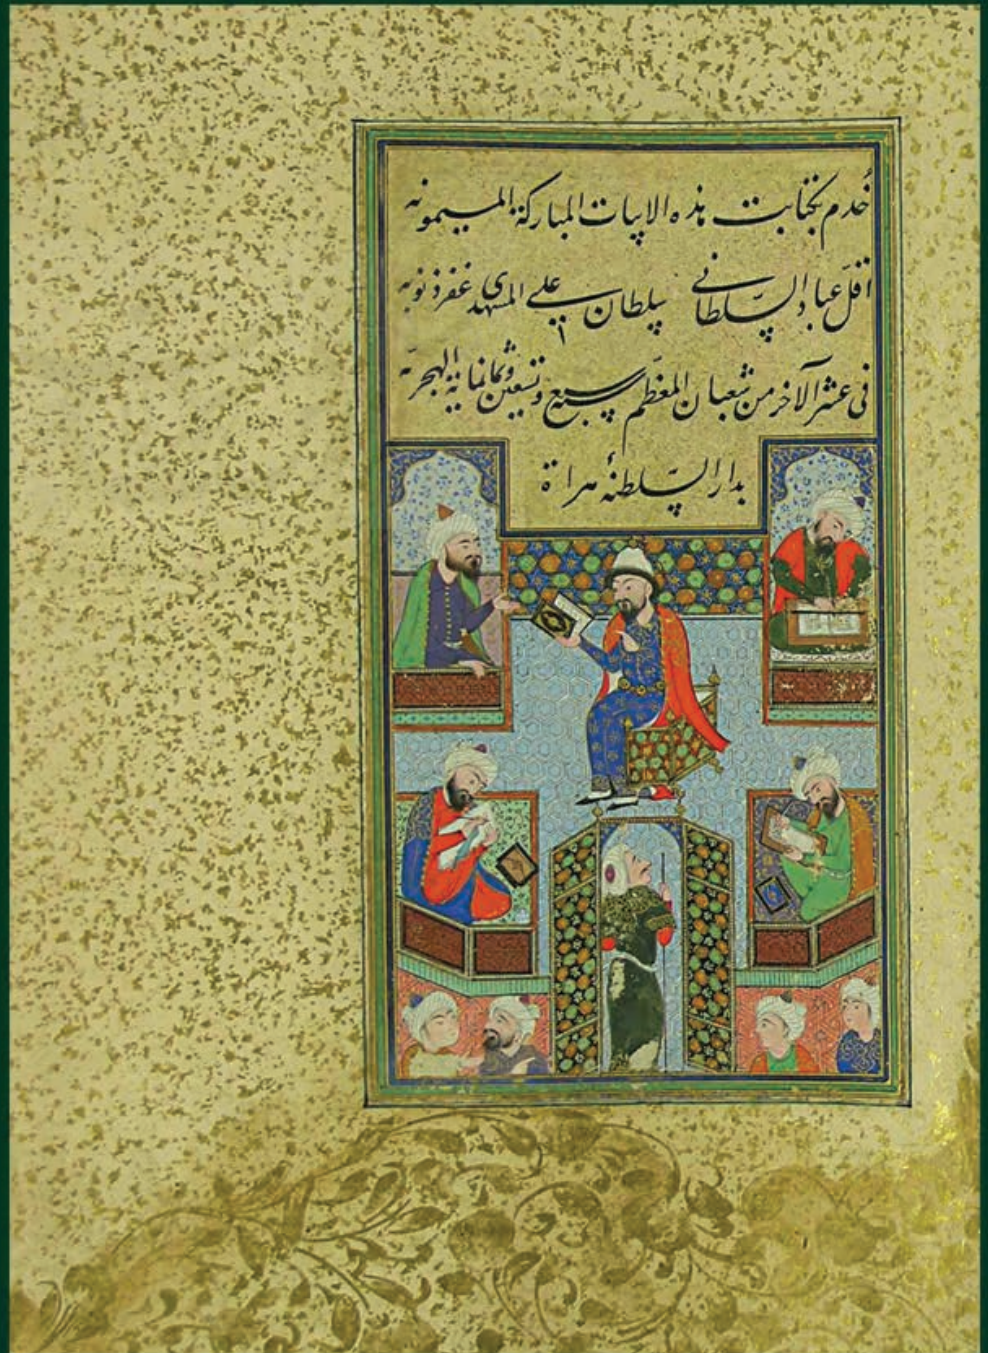 خُدم بکتابت هذه الابیات المبارکة المیمونه
اقلّ عباد السّلطانی سلطان علی المشهدی غفر ذنوبه
فی عشر الآخر من شعبان المعظّم سنه سبع وتسعین وثمانمایة الهجریّه
بدار السّلطنهٔ هراة